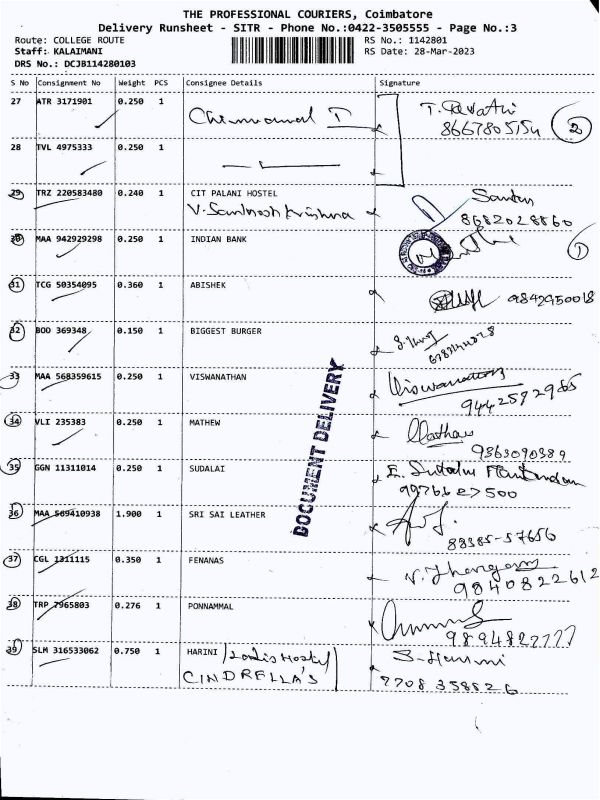 THE PROFESSIONAL COURIERS, Coimbatore
Delivery Runsheet - SITR - Phone No.:0422-3505555 - Page No.:3
Route: COLLEGE ROUTE RS No.: 1142801
Staff: KALAIMANI RS Date: 28-Mar-2023
DRS No.: DCJB114280103
S No Consignment No Weight PCS Consignee Details Signature
27 ATR 3171901 0.250 1
8667805154 2
28 TVL 4975333 0.250 1
29 TRZ 220583480 0.240 1 CIT PALANI HOSTEL
V. Santhosh Krishna 8682028860
30 MAA 942929298 0.250 1 INDIAN BANK 1
31 TCG 50354095 0.360 1 ABISHEK
9842950018
32 BOO 369348 0.150 1 BIGGEST BURGER
33 MAA 568359615 0.250 1 VISWANATHAN Viswanathan
9442582965
34 VLI 235383 0.250 1 MATHEW
9363090389
DOCUMENT DELIVERY
35 GGN 11311014 0.250 1 SUDALAI
9976627500
36 MAA 569410938 1.900 1 SRI SAI LEATHER
88385-57656
37 CGL 1311115 0.350 1 FENANAS
9840822612
38 TRP 7965803 0.276 1 PONNAMMAL
9894822777
39 SLM 316533062 0.750 1 HARINI
CINDRELLA'S 7708358826